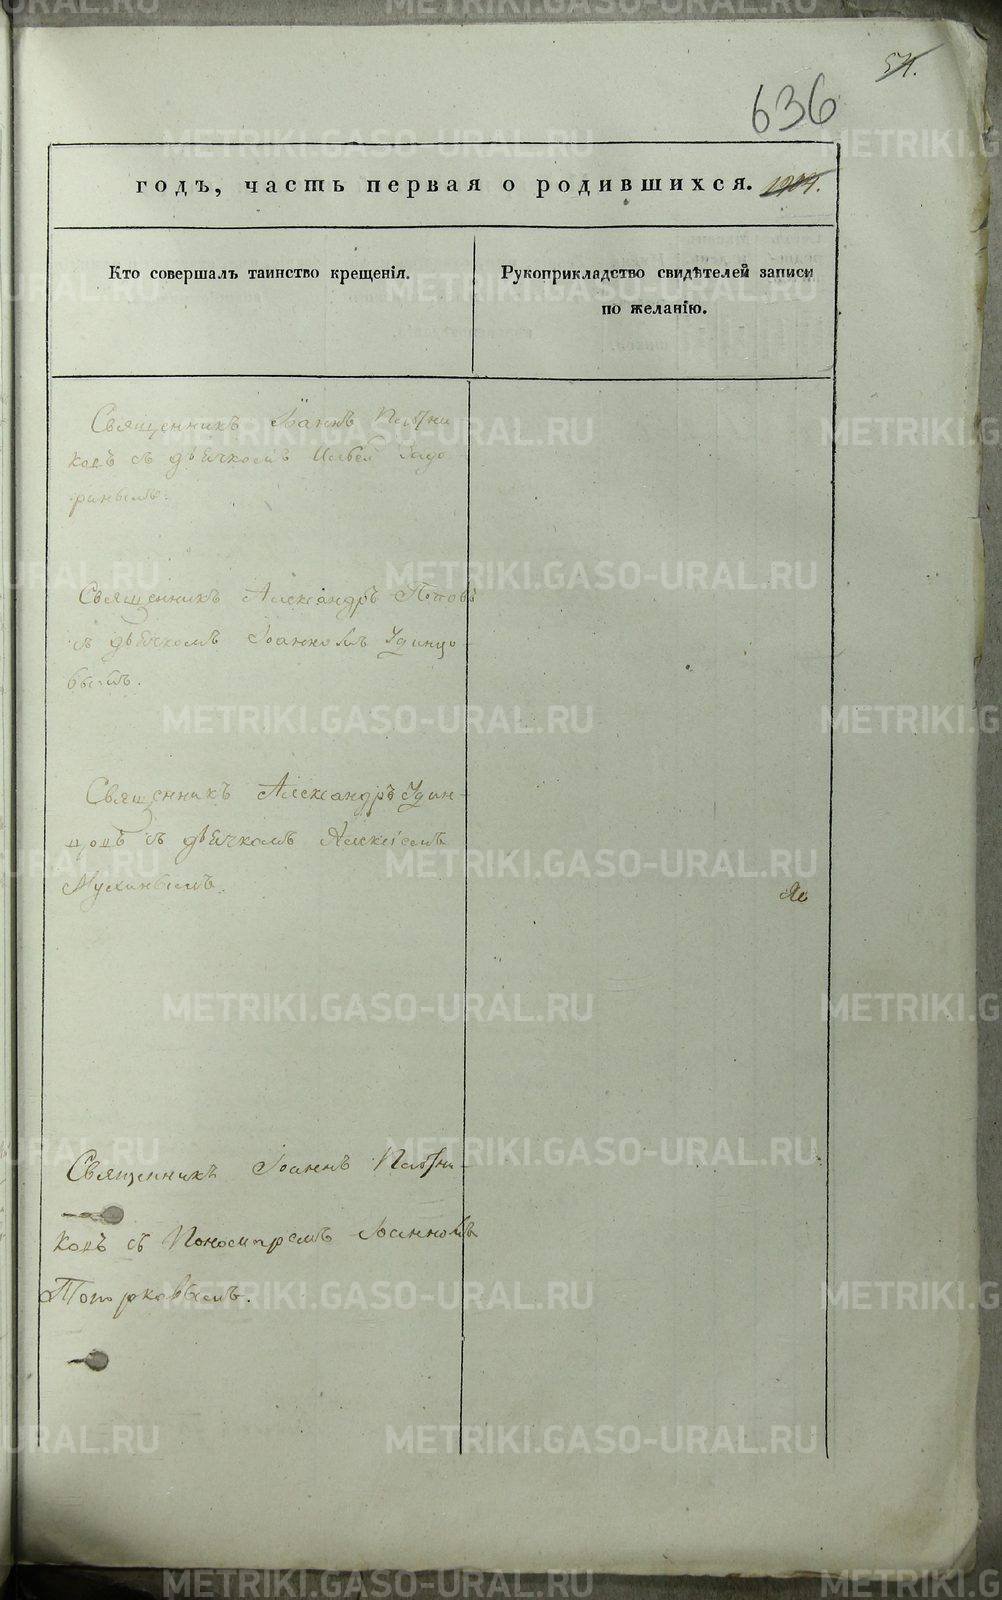 54.
636
годъ, часть первая о родившихся.
Кто совершалъ таинство крещенія.
Рукоприкладство свидѣтелей записи
по желанію.
Священникъ Іоаннъ
ковъ съ дьячкомъ
Священникъ Александръ Поповъ
съ дьячкомъ Іоанномъ Удинцо-
вымъ.
Священникъ Александръ Удин-
цовъ съ дьячкомъ Алексіемъ
Мухинымъ.
Священникъ Іоаннъ
ковъ съ Пономаремъ Іоанномъ
Топорковымъ.
METRIKI.GASO-URAL.RU